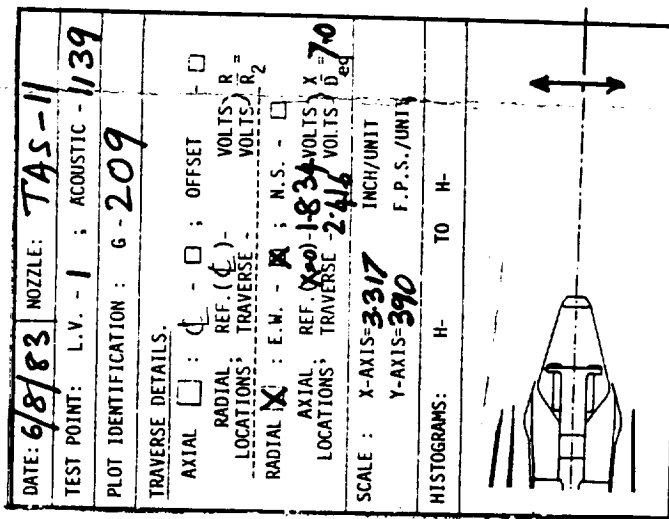 DATE: 6/8/83 NOZZLE: TAS-11
TEST POINT: L.V. - 1 ; ACOUSTIC - 1139
PLOT IDENTIFICATION : G - 209
TRAVERSE DETAILS.
AXIAL □ : ℄ - □ ; OFFSET - □
RADIAL REF. (℄) - VOLTS } R/R2 =
LOCATIONS; TRAVERSE - VOLTS
RADIAL ☒ : E.W. - ☒ ; N.S. - □
AXIAL REF. (X=0) - 1.834 VOLTS } X/Deq = 7.0
LOCATIONS; TRAVERSE - 2.416 VOLTS
SCALE : X-AXIS= 3.317 INCH/UNIT
Y-AXIS= 390 F.P.S./UNIT
HISTOGRAMS: H- TO H-